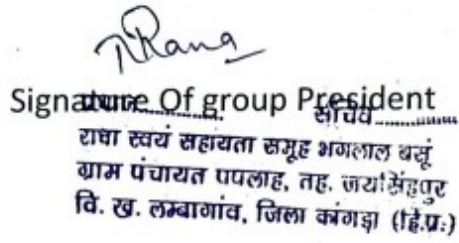 Rana
Signature Of group President
प्रधान.............. सचिव..............
राधा स्वयं सहायता समूह भगलाल बसूं
ग्राम पंचायत पपलाह, तह. जयसिंहपुर
वि. ख. लम्बागांव, जिला कांगड़ा (हि.प्र.)